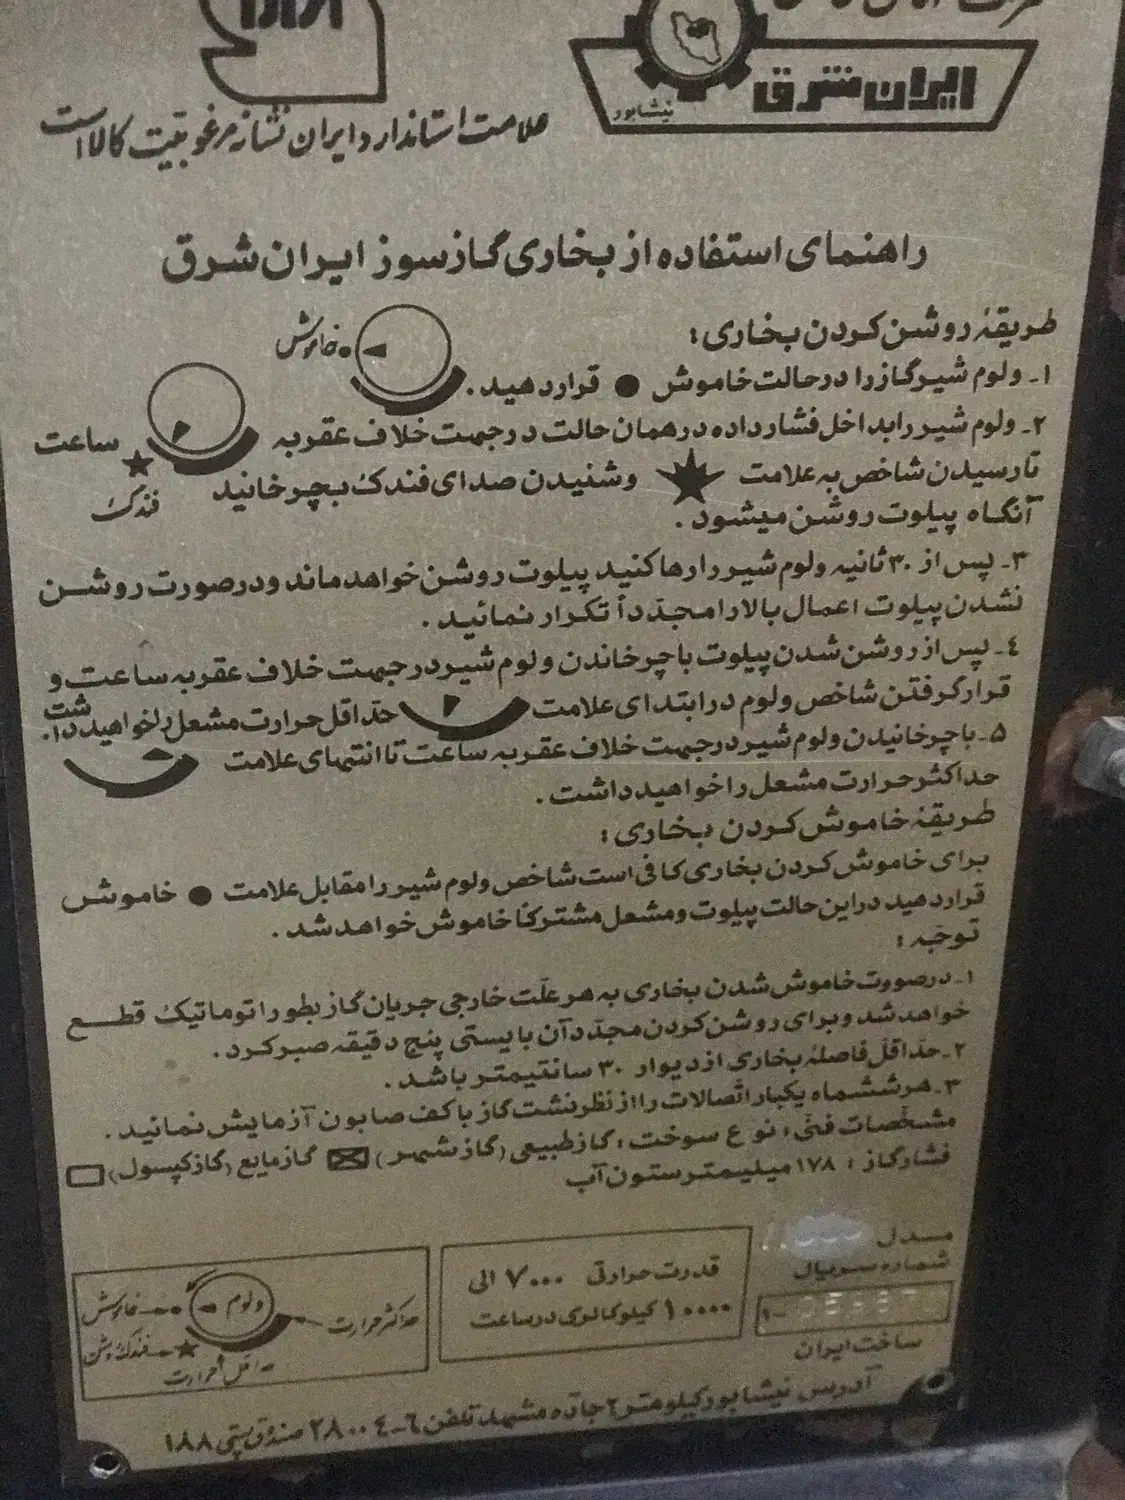 ایران شرق
نیشابور
علامت استاندارد ایران نشانه مرغوبیت کالا است
راهنمای استفاده از بخاری گازسوز ایران شرق
طریقهٔ روشن کردن بخاری:
خاموش
۱ـ ولوم شیر گاز را در حالت خاموش ● قرار دهید.
۲ـ ولوم شیر را بداخل فشار داده در همان حالت در جهت خلاف عقربه ساعت
تا رسیدن شاخص به علامت و شنیدن صدای فندک بچرخانید
فندک
آنگاه پیلوت روشن میشود.
۳ـ پس از ۳۰ ثانیه ولوم شیر را رها کنید پیلوت روشن خواهد ماند و در صورت روشن
نشدن پیلوت اعمال بالا را مجدّداً تکرار نمائید.
۴ـ پس از روشن شدن پیلوت با چرخاندن ولوم شیر در جهت خلاف عقربه ساعت و
قرار گرفتن شاخص ولوم در ابتدای علامت حدّاقل حرارت مشعل را خواهید داشت.
۵ـ با چرخانیدن ولوم شیر در جهت خلاف عقربه ساعت تا انتهای علامت
حداکثر حرارت مشعل را خواهید داشت.
طریقهٔ خاموش کردن بخاری:
برای خاموش کردن بخاری کافی است شاخص ولوم شیر را مقابل علامت ● خاموش
قرار دهید در این حالت پیلوت و مشعل مشترکا خاموش خواهد شد.
توجّه:
۱ـ در صووت خاموش شدن بخاری به هر علّت خارجی جریان گاز بطور اتوماتیک قطع
خواهد شد و برای روشن کردن مجدّد آن بایستی پنج دقیقه صبر کرد.
۲ـ حدّاقل فاصلهٔ بخاری از دیوار ۳۰ سانتیمتر باشد.
۳ـ هر ششماه یکبار اتّصالات را از نظر نشت گاز با کف صابون آزمایش نمائید.
مشخّصات فنّی: نوع سوخت: گاز طبیعی (گاز شهر) ☒ گاز مایع (گاز کپسول) ☐
فشار گاز: ۱۷۸ میلیمتر ستون آب
مدل
شماره سریال
ساخت ایران
قدرت حرارتی ۷۰۰۰ الی
۱۰۰۰۰ کیلوکالری در ساعت
ولوم
خاموش
فندک روشن
حداقل حرارت
حداکثر حرارت
آدرس نیشابور کیلومتر ۲ جادّه مشهد تلفن ۶-۲۸۰۰۴ صندوق پستی ۱۸۸